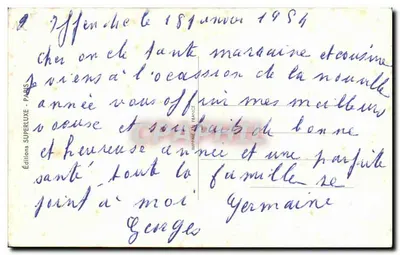 Iffendic le 18 janvier 1954
cher oncle tante marraine et cousine
je viens à l'ocassion de la nouvelle
année vous offrir mes meilleurs
voeuse et souhaits de bonne
et heureuse année et une parfaite
santé toute la famille se
joint à moi Germaine
Georges
Éditions SUPERLUXE - PARIS